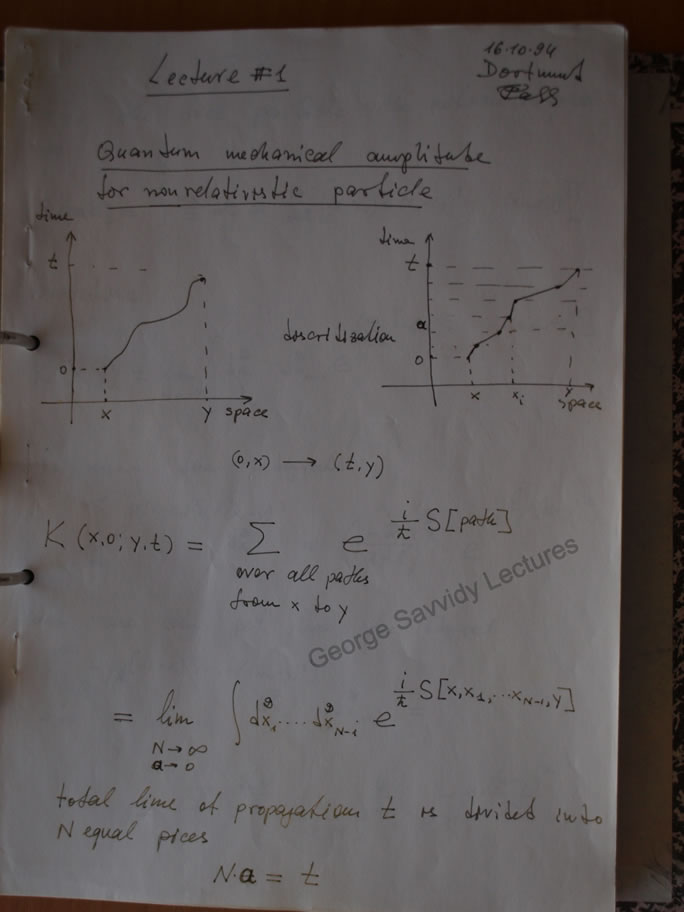 Lecture #1
16.10.94
Dortmunt
Quantum mechanical amplitude
for nonrelativistic particle
time
t
0
x
y
space
time
t
discritization
a
0
x
x_i
y
space
(0,x) → (t,y)
K(x,0; y,t) = Σ e^{i/ħ S[path]}
over all paths
from x to y
George Savvidy Lectures
= lim ∫ dx_1^D .... dx_{N-1}^D e^{i/ħ S[x,x_1,...x_{N-1},y]}
N→∞
a→0
total time of propagation t is divided into
N equal pices
N·a = t